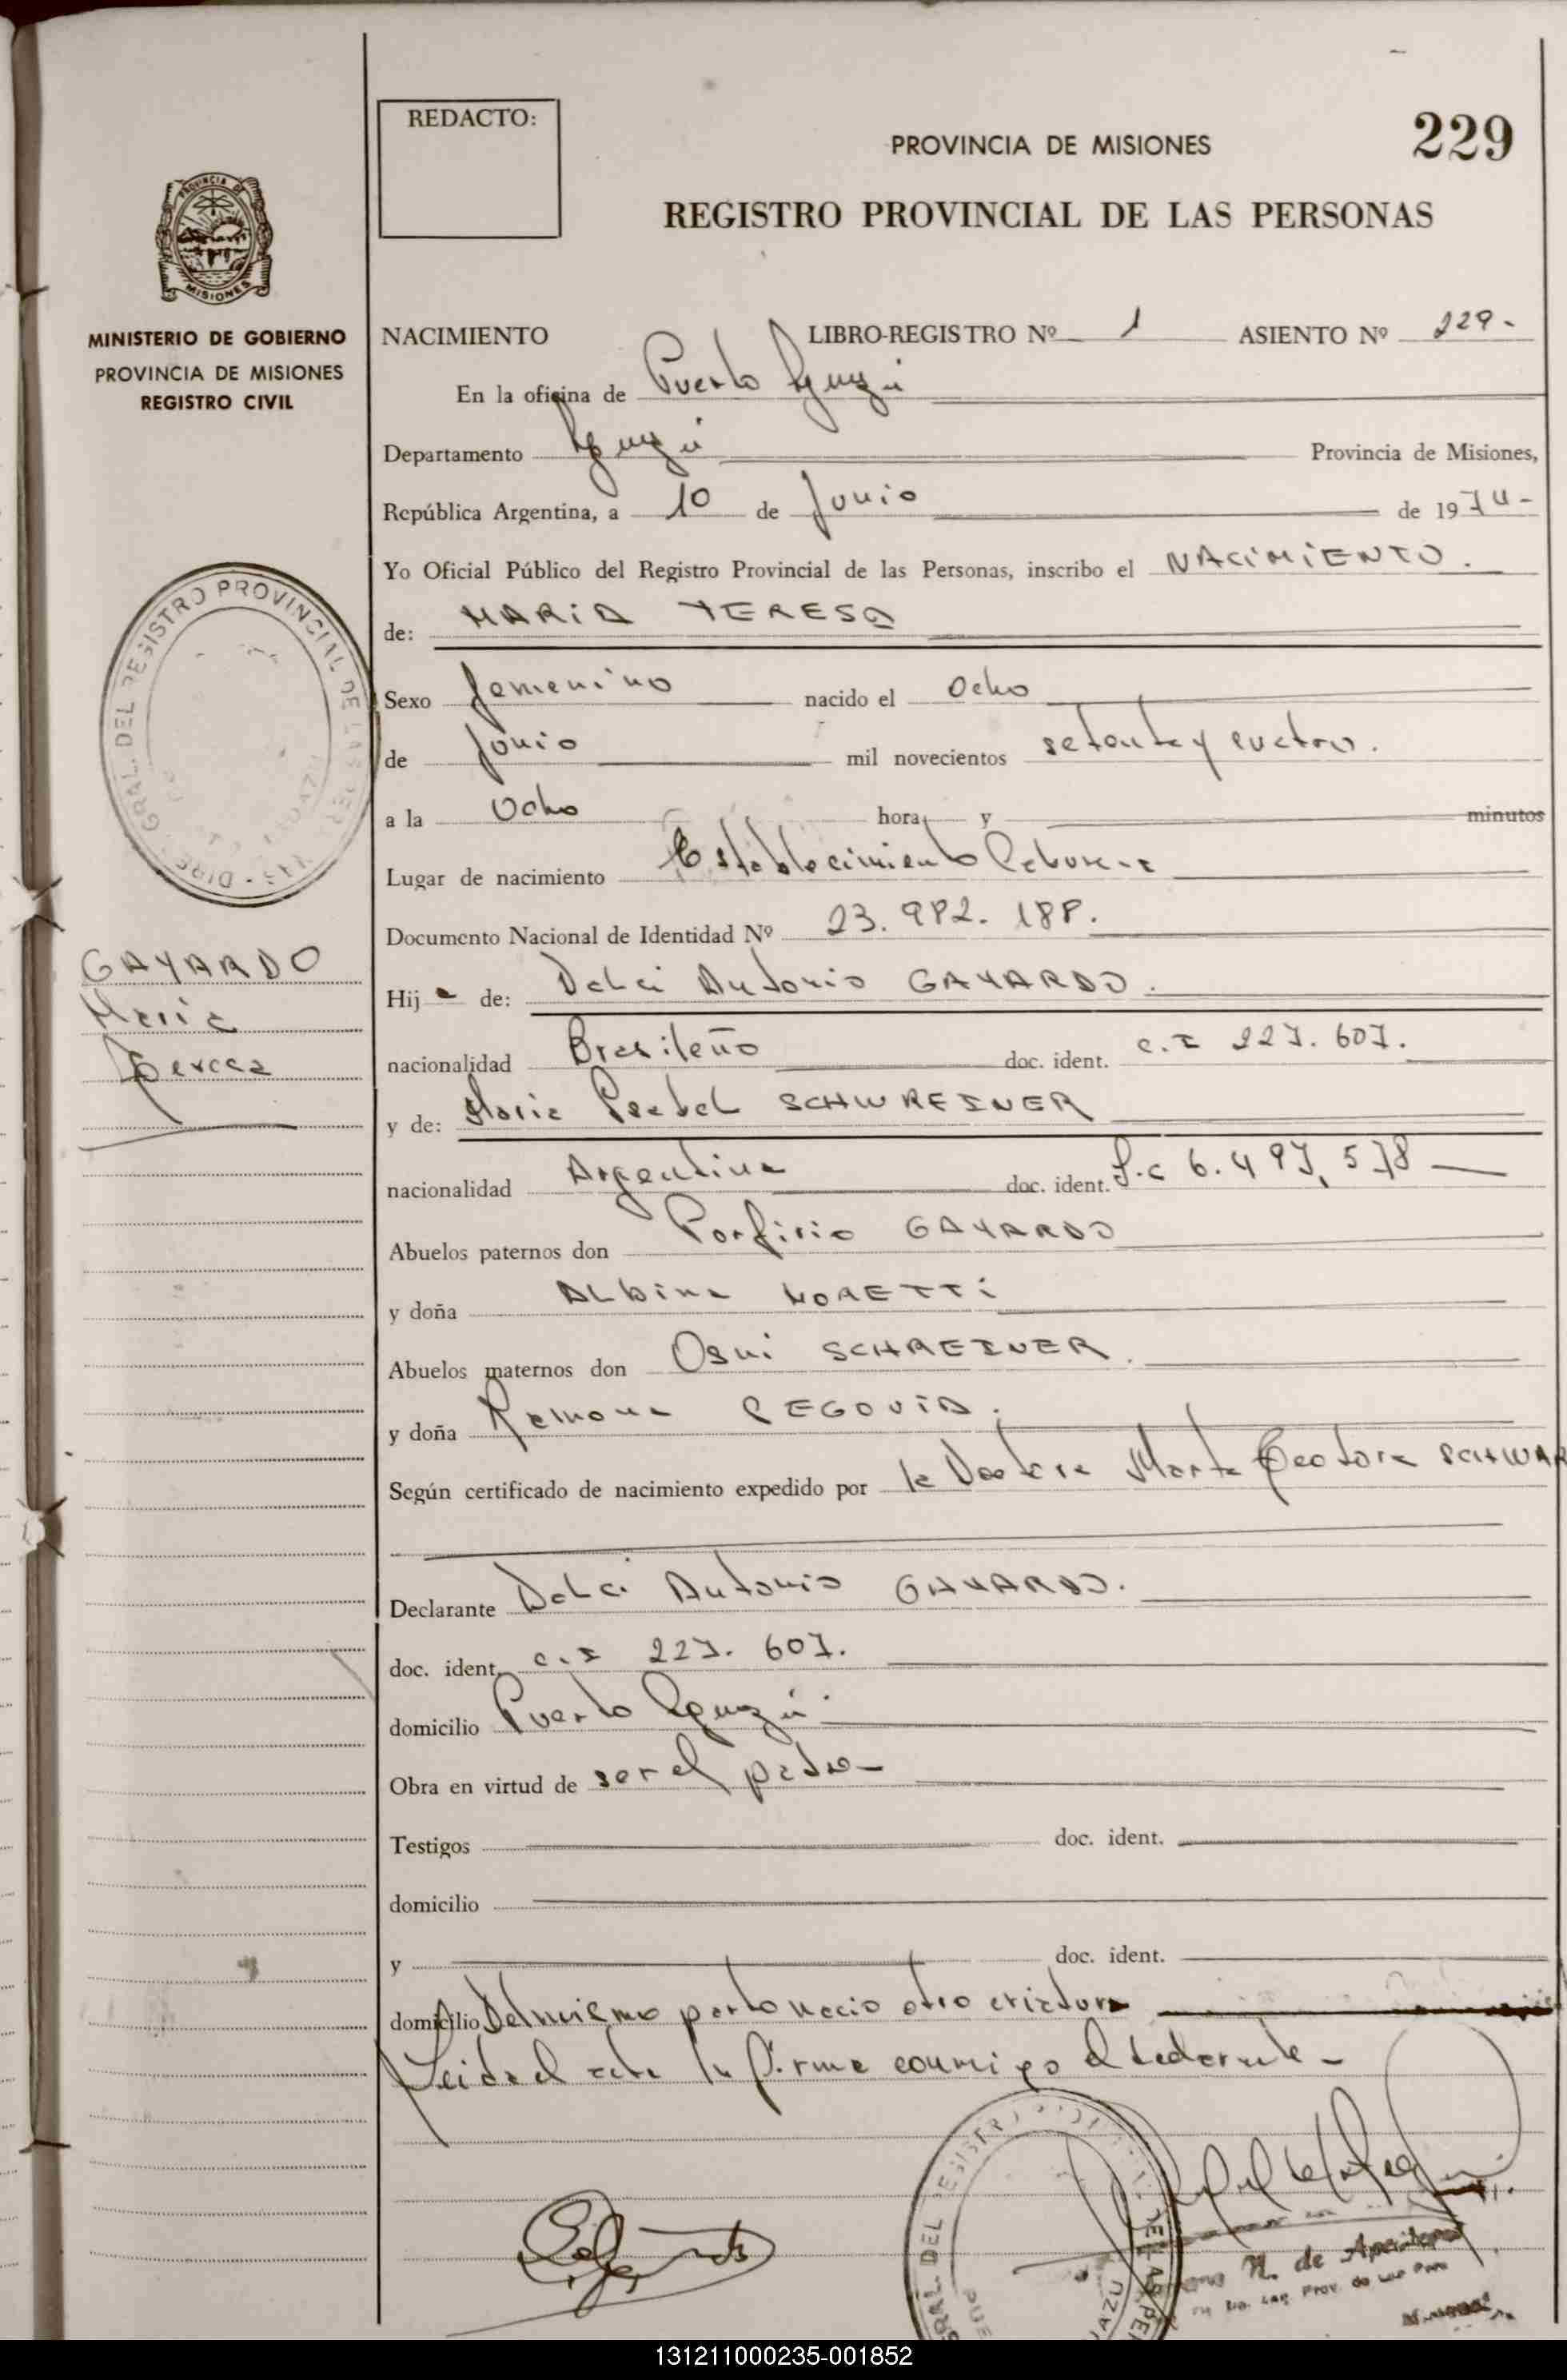 REDACTO:
PROVINCIA DE MISIONES
229
REGISTRO PROVINCIAL DE LAS PERSONAS
PROVINCIA DE
MISIONES
MINISTERIO DE GOBIERNO
PROVINCIA DE MISIONES
REGISTRO CIVIL
NACIMIENTO LIBRO-REGISTRO Nº 1 ASIENTO Nº 229-
En la oficina de Puerto Iguazú
Departamento Iguazú Provincia de Misiones,
República Argentina, a 10 de Junio de 1974-
Yo Oficial Público del Registro Provincial de las Personas, inscribo el NACIMIENTO.
de: MARIA TERESA
Sexo femenino nacido el Ocho
de Junio mil novecientos setenta y cuatro.
a la Ocho hora y minutos
Lugar de nacimiento Establecimiento
Documento Nacional de Identidad Nº 23.982.188.
GAYARDO
Maria
Teresa
Hija de: Delci Antonio GAYARDO.
nacionalidad Brasileño doc. ident. C.I 227.607.
y de: Maria Isabel SCHWREINER
nacionalidad Argentina doc. ident. L.C 6.497.578
Abuelos paternos don Porfirio GAYARDO
y doña ALbina MORETTi
Abuelos maternos don Osni SCHREINER.
y doña Ramona SEGOVIA.
Según certificado de nacimiento expedido por la Doctora Marta Teodora SCHWAR
Declarante Delci Antonio GAYARDO.
doc. ident. C.I 227.607.
domicilio Puerto Iguazú.
Obra en virtud de ser el padre-
Testigos doc. ident.
domicilio
y doc. ident.
domicilio Del mismo parto nacio otra criatura
Leida el acta la firma conmigo el declarante-
DIREC. GRAL. DEL REGISTRO PROVINCIAL DE LAS PERSONAS
GRAL. DEL REGISTRO
N. de
131211000235-001852